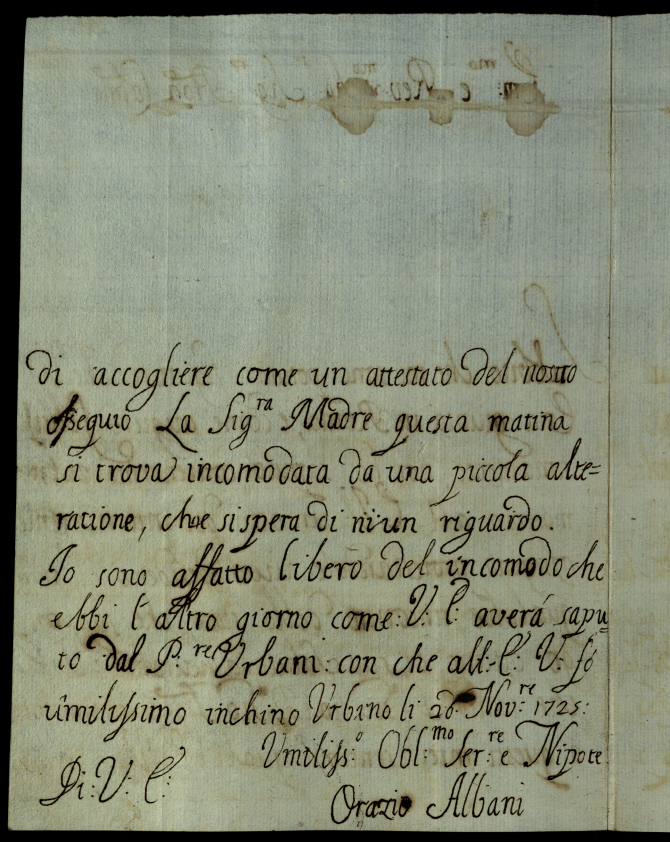 di accogliere come un attestato del nostro
ossequio La Sig.ra Madre questa matina
si trova incomodata da una piccola alte=
ratione, che si spera di niun riguardo.
Io sono affatto libero del incomodo che
ebbi l'altro giorno come: V: E: averá sapu=
to dal P.re Urbani: con che all:E: V: fó
umilissimo inchino Urbino li 20: Nov:re 1725:
Umiliss:o Obl:mo Ser:re e Nipote
Di: V: E:
Orazio Albani